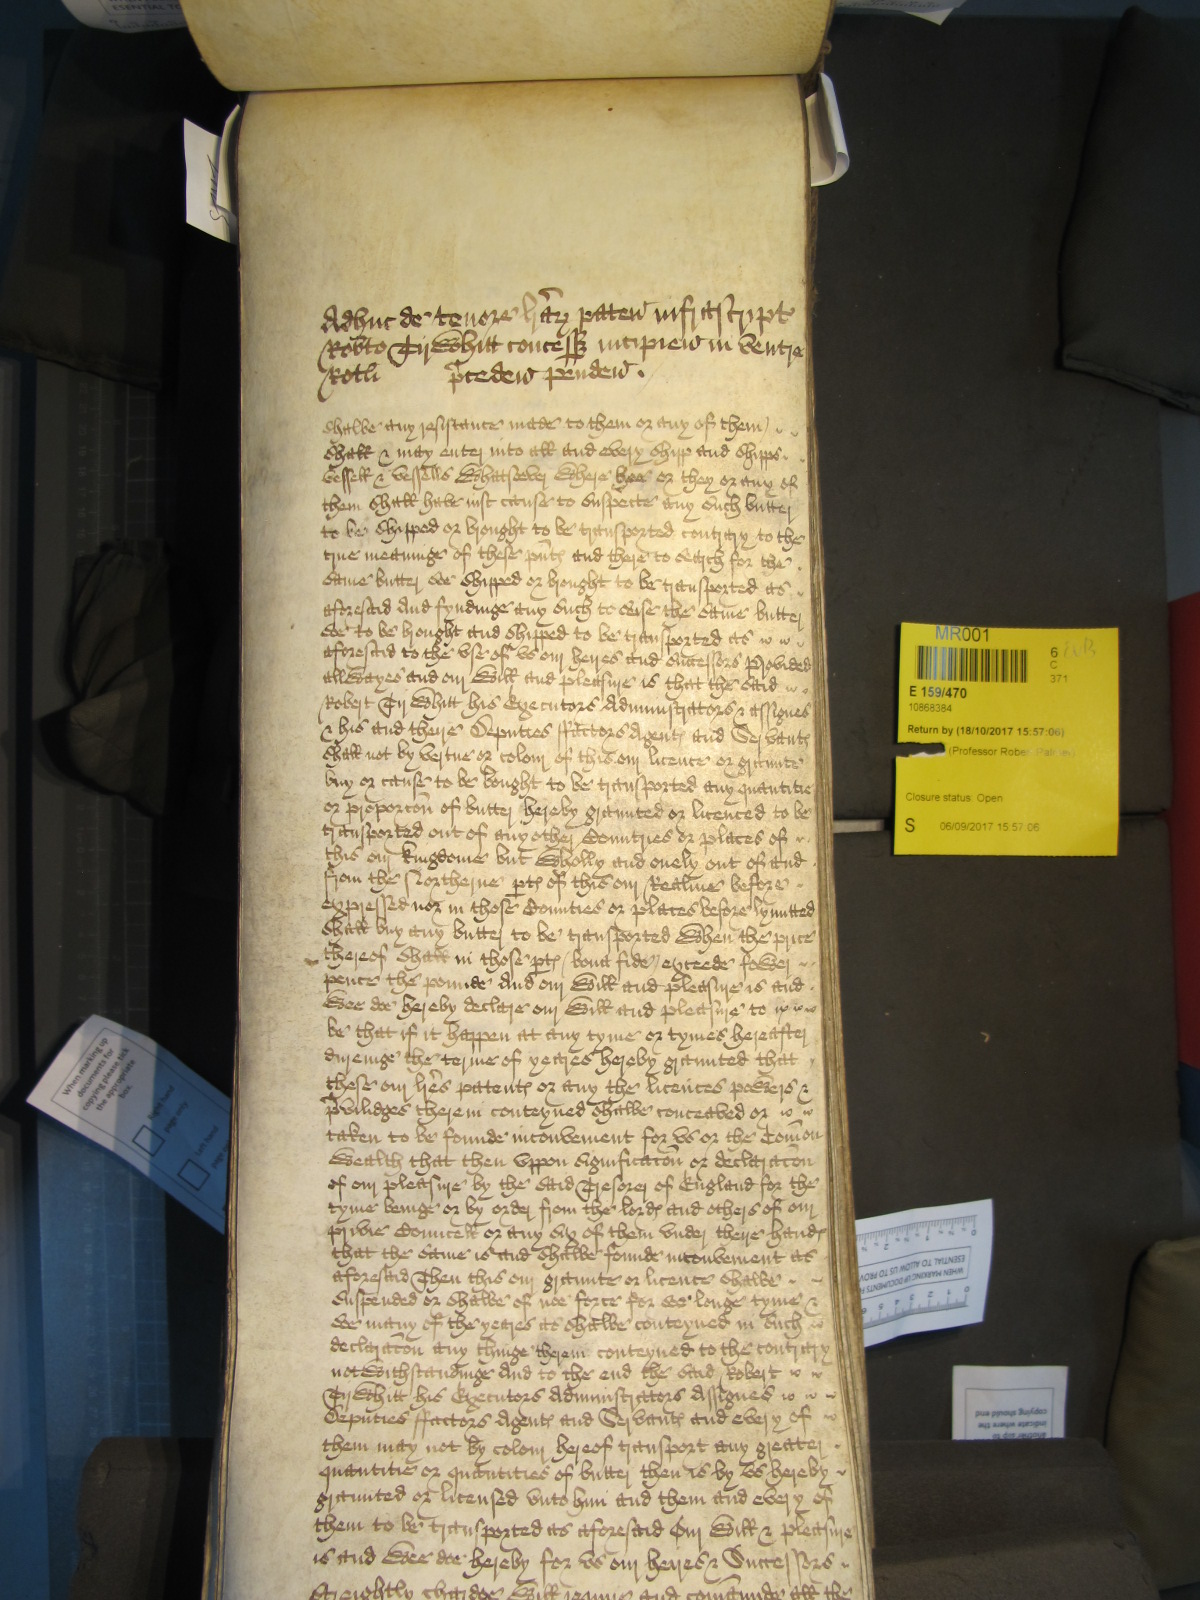 Adhuc de tenore lrãrz paten infrascript
Robto Tyrwhitt concess incipien in ventre
Rotli p̃ceden penden.
shalbe any resistance made to them or any of them
shall & may enter into all and every shipp and shipps
vessell & vessells whatsoever where hee or they or any of
them shall have iust cause to suspecte any such butter
to be shipped or brought to be transported contrary to the
true meaninge of these pñts and there to search for the
same butter soe shipped or brought to be transported as
aforesaid And fyndinge any such to seise the same butter
soe to be brought and shipped to be transported as
aforesaid to the vse of vs our heires and successors Provided
allwayes and our will and pleasure is that the said
Robert Tirwhitt his Executors Administrators & assignes
& his and there Deputies ffactors Agents and Servants
shall not by vertue or colour of this our licence or graunte
buy or cause to be bought to be transported any quantitie
or proporcõn of butter hereby graunted or licenced to be
transported out of any other Counties or places of
this our kingdome but wholly and onely out of and
from the Northerne pts of this our Realme before
expressed nor in those Counties or places before lymitted
shall buy any butter to be transported when the price
thereof shall in those pts (bona fide) exceede fower
pence the pounde And our will and pleasure is and
wee doe hereby declare our will and pleasure to
be that if it happen at any tyme or tymes hereafter
dureinge the terme of yeares hereby graunted that
these our lrẽs patents or any the licences powers &
p̃vilidges therein conteyned shalbe conceaved or
taken to be founde inconvenient for vs or the Com̃on
wealth that then vppon significacõn or declaracõn
of our pleasure by the said Tresorer of England for the
tyme beinge or by order from the lords and others of our
privie Councell or any six of them vnder there hands
that the same is and shalbe founde inconvenient as
aforesaid Then this our graunte or licence shalbe
suspended or shalbe of noe force for soe longe tyme &
soe many of the yeares as shalbe conteyned in such
declaracõn any thinge therein conteyned to the contrary
notwithstandinge And to the end the said Robert
Tirwhitt his Executors Administrators Assignes
Deputies ffactors Agents and Servants and every of
them may not by colour hereof transport any greater
quantitie or quantities of butter then is by vs hereby
graunted or licensed vnto him and them and every of
them to be transported as aforesaid Our will & pleasure
is and wee doe hereby for vs our heires & Successors
streightly chardge will require and com̃aunde all the
MR001
6
C
371
E 159/470
10868384
Return by (18/10/2017 15:57:06)
(Professor Robert Palmer)
Closure status: Open
S 06/09/2017 15:57:06
When marking up
documents for
copying please tick
the appropriate
box.
Right hand
page only
Left hand
page only
WHEN MARKING UP DOCUMENTS
ESSENTIAL TO ALLOW US TO PROV
another slip to
indicate where the
copying should end